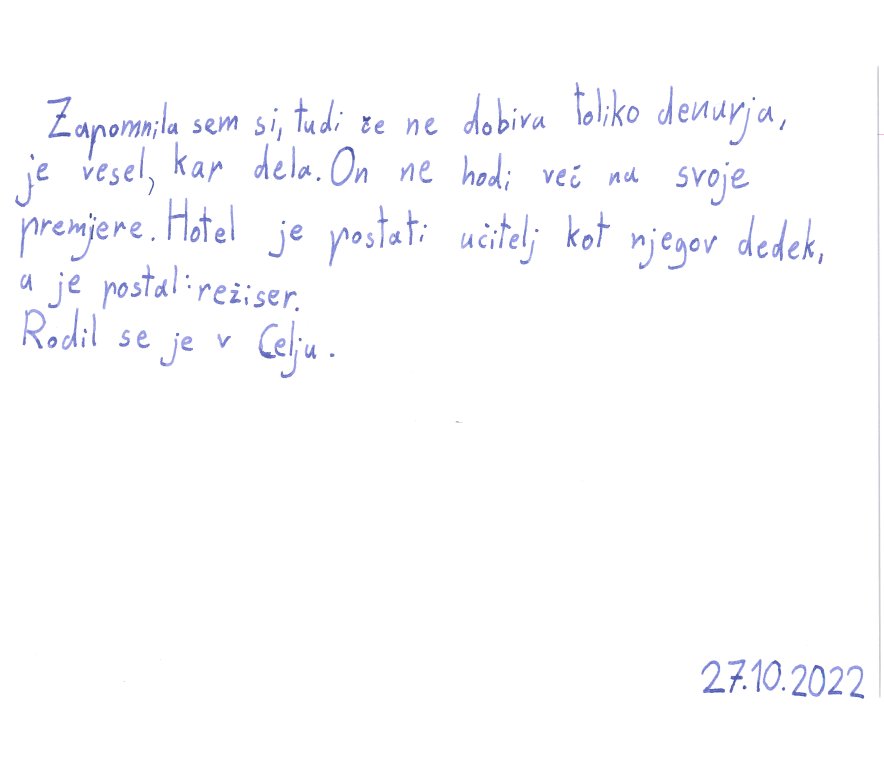 Zapomnila sem si, tudi če ne dobiva toliko denarja,
je vesel, kar dela. On ne hodi več na svoje
premjere. Hotel je postati učitelj kot njegov dedek,
a je postal režiser.
Rodil se je v Celju.
27.10.2022